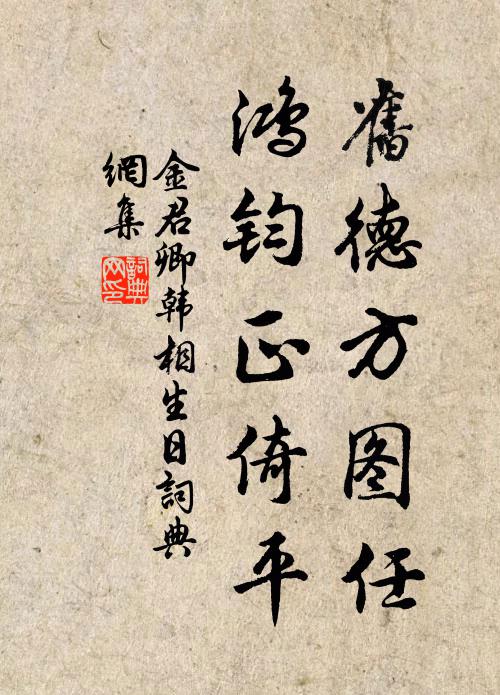 舊德方图任
鴻钧正倚平
金君卿韩相生日詞典
網集
詞典
网印